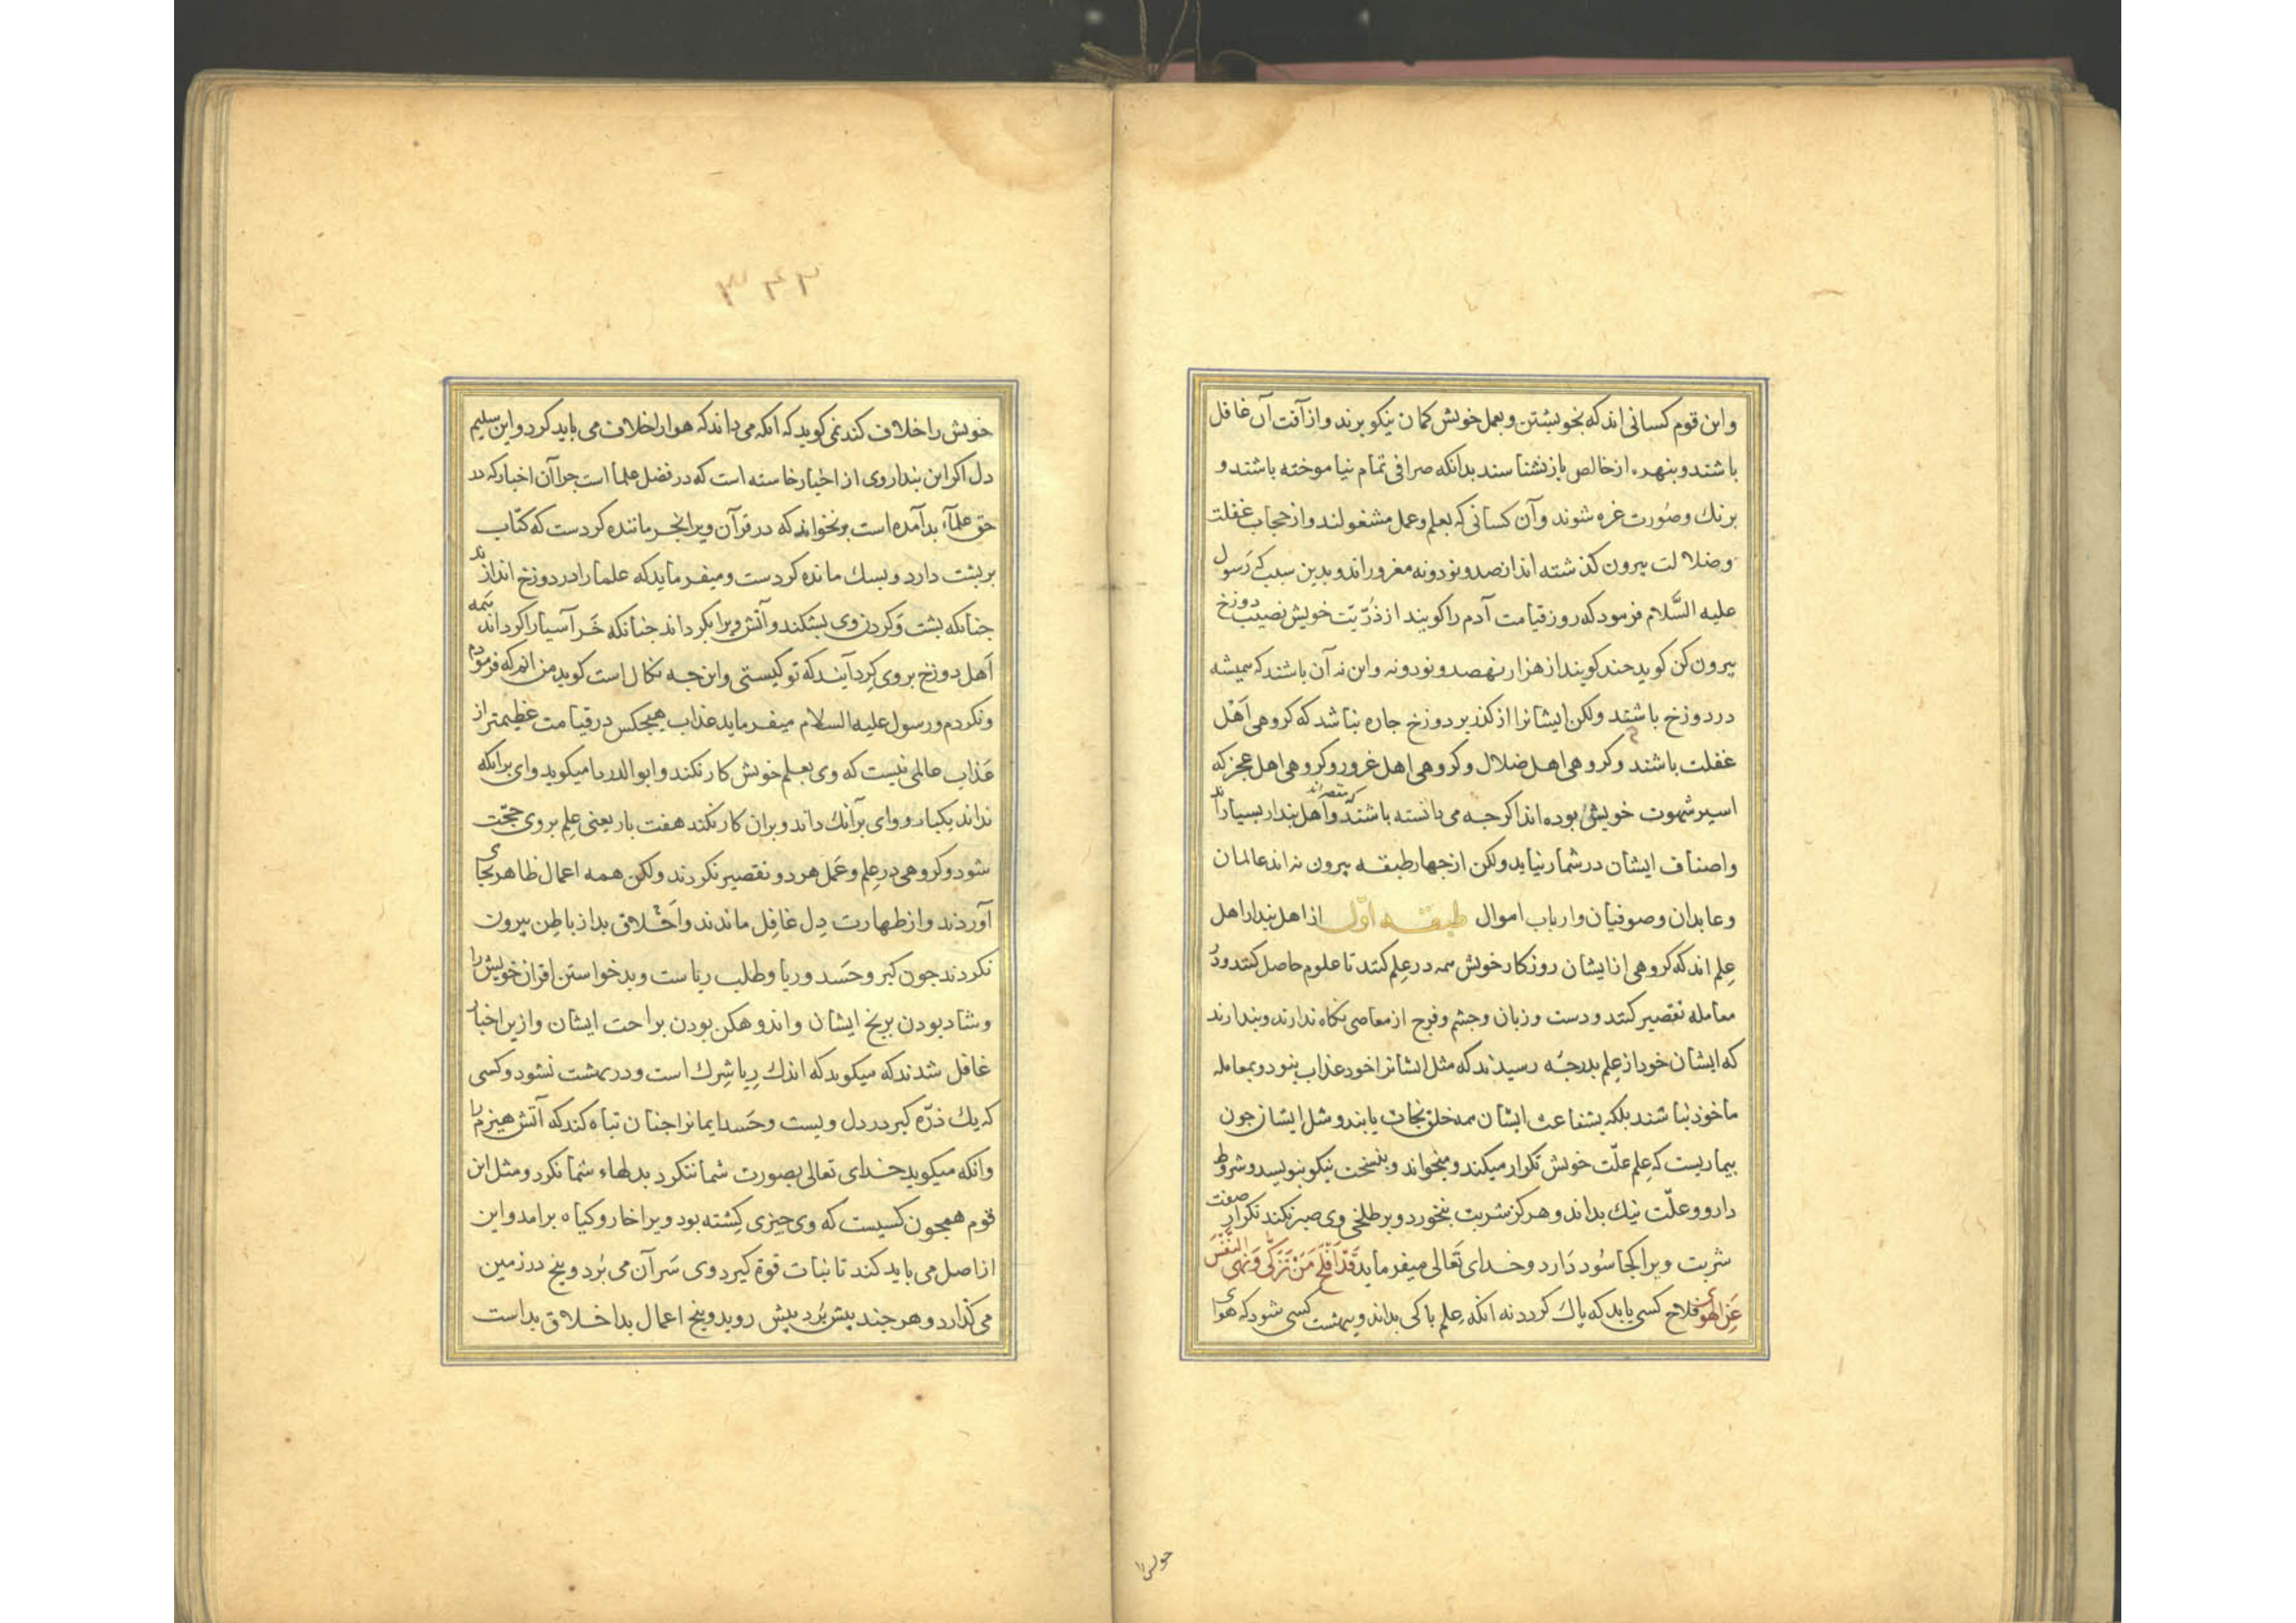 واین قوم کسانی اند که بخویشتن و بعمل خویش کمان نیکو برند و از آفت آن غافل
باشند و بنهره از خالص باز نشناسند بدانکه صرافی تمام نیاموخته باشند و
برنك وصُورت غره شوند وآن کسانی که بعلم وعمل مشغولند واز حجاب غفلت
وضلالت بیرون کذشته اند از صد نود ونه مغرور اند و بدین سبب که رَسول
علیه السَّلام فرمود که روز قیامت آدم را کویند از ذُرّیّت خویش نصیب دوزخ
بیرون کن کوید جند کویند از هزار نهصد و نود ونه واین نه آن باشند که همیشه
در دوزخ باشند ولکن ایشانرا از کذر بر دوزخ جاره نباشد که کروهی اَهْل
غفلت باشند وکروهی اهل ضلال وکروهی اهل غرور وکروهی اهل عجز که
اسیر شهوت خویش بوده اند اکرجه می دانسته باشند که مقصراند واهل بندار بسیار اند
واصناف ایشان در شمار نیاید ولکن از جهار طبقه بیرون نه اند عالمان
وعابدان وصوفیان وارباب اموال طبقه اوّل از اهل بندار اهل
عِلم اند که کروهی از ایشان روزکار خویش همه در عِلم کنند تا علوم حاصل کنند ودر
معامله تقصیر کنند ودست وزبان وجشم وفرج از معاصی نکاه ندارند وبندارند
که ایشان خود از عِلم بدرجهٔ رسیدند که مثل ایشانرا خود عذاب نبود وبمعامله
ماخوذ نباشند بلکه بشفاعت ایشان همه خلق نجات یابند ومثل ایشان جون
بیماریست که عِلم علّت خویش تکرار میکند ومیخواند وبنسخت نیکو بنویسد وشروط
دارو وعلّت نیك بداند وهرکز شربت نخورد وبر طلخی وی صبر نکند تکرار صفت
شربت ویرا کجا سُود دَارد وخدای تَعالی میفرماید قَدْ اَفْلَحَ مَنْ تَزَکّٰی وَنَهَی النَّفْسَ
عَنِ الهَویٰ فلاح کسی یابد که پاك کردد نه انکه عِلم باکی بداند وببهشت کسی شود که هوای
خویش را
٣٤٣
خویش را خلاف کند نمی کوید که انکه می داند که هوارا خلاف می باید کرد واین سلیم
دل اکر این بندار وی از اخبار خاسته است که در فضل علما است جرا آن اخبار که در
حق علمآء بد آمده است برنخواند که در قرآن ویرا بخر ماننده کردست که کتاب
بر بشت دارد وبسك مانده کردست ومیفرماید که علما را در دوزخ اندازند
جنانکه بشت وَکردن وی بشکند وآتش ویرا بکرداند جنانکه خَر آسیا را کرداند همه
اَهل دوزخ بروی کِرد آیند که تو کیستی واین جه نکال است کوید من انم که فرمودم
ونکردم ورسول علیه السلام میفرماید عذاب هیجکس در قیامت عظیمتر از
عَذاب عالمی نیست که وی بعلم خویش کار نکند وابو الدردا میکوید وای برانکه
نداند یکبار ووای برآنك داند وبران کار نکند هفت بار یعنی عِلم بر وی حجّت
شود وکروهی در عِلم وعَمل هر دو تقصیر نکردند ولکن همه اعمال ظاهر بجای
آوردند واز طهارت دِل غافِل ماندند واَخْلاق بد از باطِن بیرون
نکردند جون کبر وحَسد وریا وطلب ریاست وبد خواستن اقران خویش را
وشاد بودن برنج ایشان واندوهکن بودن براحت ایشان وازین اخبار
غافل شدند که میکوید که اندك رِیا شِرك است ودر بهشت نشود کسی
که یك ذرّه کبر در دل ویست وحَسد ایمانرا جنان تباه کند که آتش هیزم را
وانکه میکوید خدای تعالی بصورت شما ننکرد بدلهاء شما نکرد ومثل این
قوم همجون کسیست که وی جیزی کِشته بود ویرا خار وکیاه برامد واین
از اصل می باید کند تا نبات قوة کیرد وی سَر آن می بُرد وبیخ در زمین
می کذارد وهر جند بیش بُرد بیش روید وبیخ اعمال بد اخلاق بد است